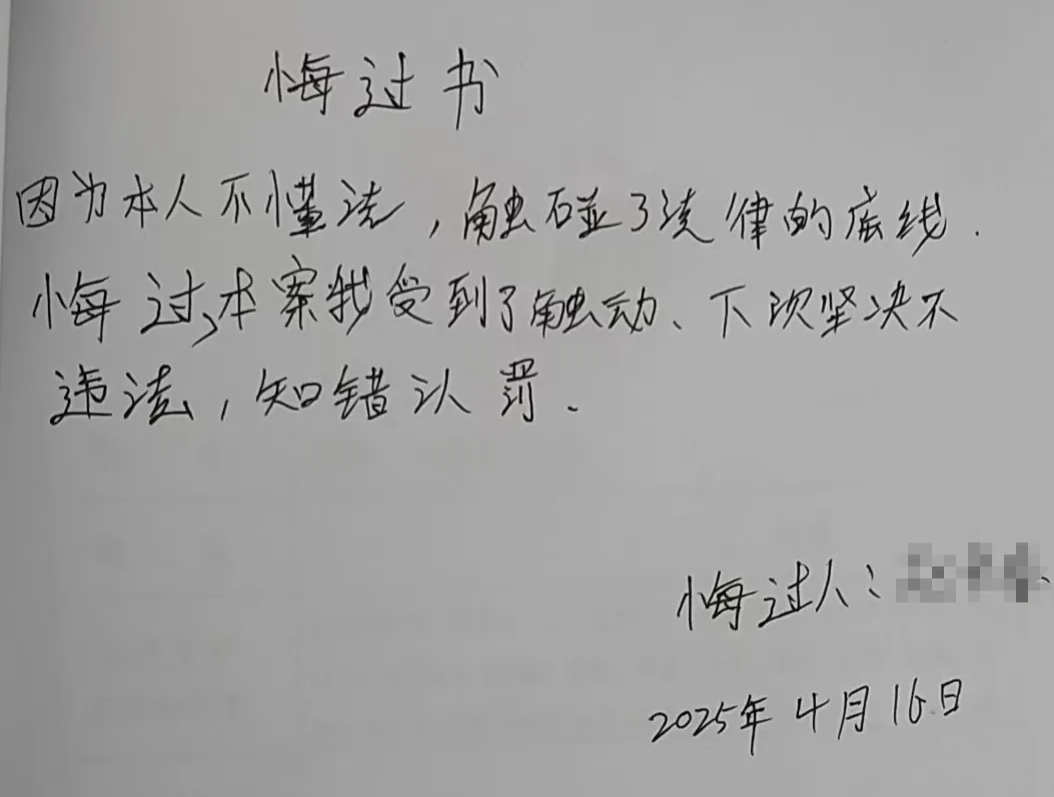 悔过书
因为本人不懂法，触碰了法律的底线.
悔过,本案我受到了触动、下次坚决不
违法，知错认罚.
悔过人：
2025年4月16日